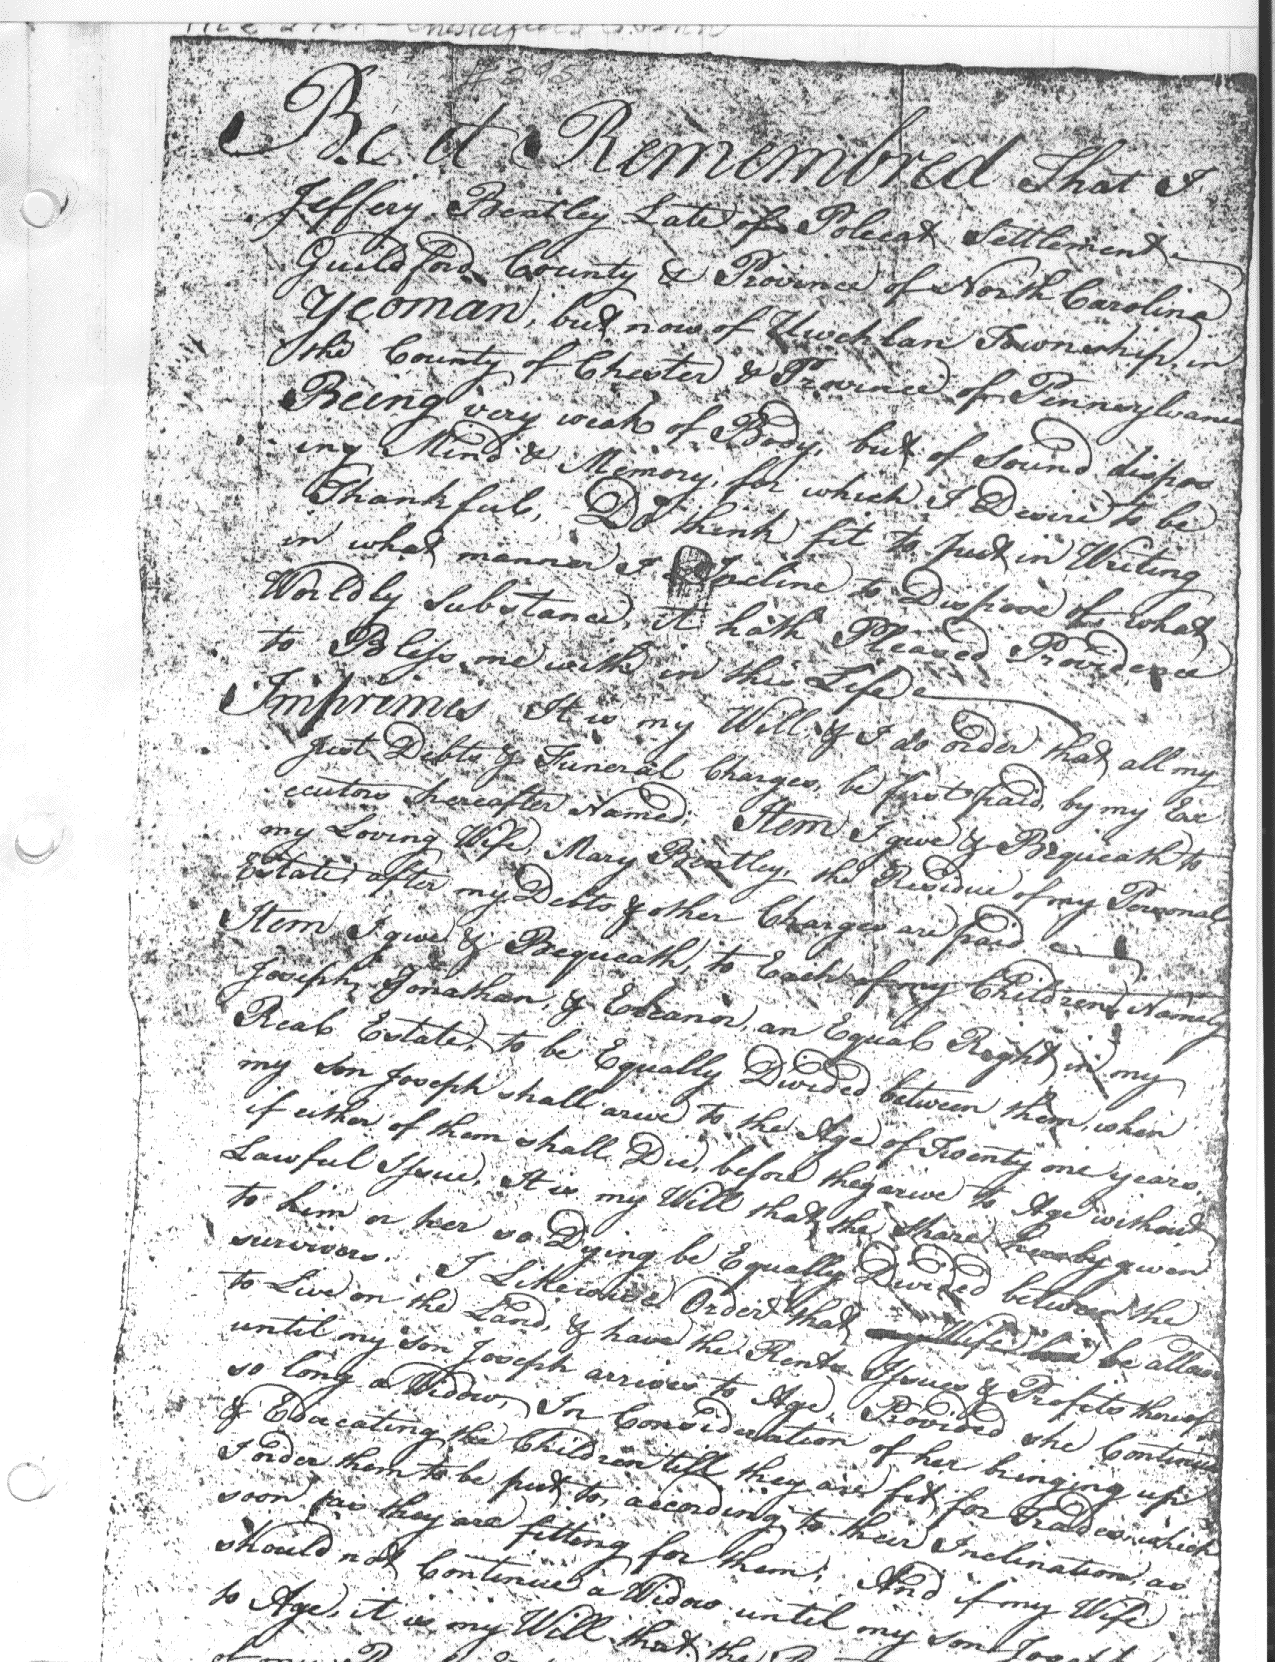 Be it Remembred that I
Jeffery Bentley Late of Polecat Settlement
Guildford County & Province of North Carolina
Yeoman, but now of Uwchlan Township, in
the County of Chester & Province of Pennsylvania
Being very weak of Body, but of Sound dispos
ing Mind & Memory, for which I Desire to be
Thankful, Do think fit to put in Writing
in what manner I Incline to Dispose of what
Worldly Substance, it hath Pleased Providence
to Bless me with in this Life
Imprimes It is my Will & I do order that all my
just Debts & Funeral Charges, be first paid, by my Ex
ecutors hereafter Named. Item I give & Bequeath to
my Loving Wife, Mary Bentley, the Residue of my Personal
Estate, after my Debts & other Charges are paid
Item I give & Bequeath, to Each of my Children, Namely
Joseph, Jonathan, & Eleanor, an Equal Right in my
Real Estate, to be Equally Divided between them, when
my Son Joseph shall arive to the Age of Twenty one years.
if either of them shall Die, before they arive to Age without
Lawful Issue, It is my Will that the share hereby given
to him or her so Dying be Equally Divided between the
survivors. I Likewise Order that my Wife be allow
to Live on the Land, & have the Rents Issues & Profits thereof
until my son Joseph arrives to Age, Provided she Continue
so long a Widow, In Consideration of her bringing up
& Educating the Children till they are fit for Trades which
I order them to be put to, according to their Inclination, as
soon as they are fitting for them; And if my Wife
should not Continue a Widow until my son Joseph
to Age, it is my Will that the
of my